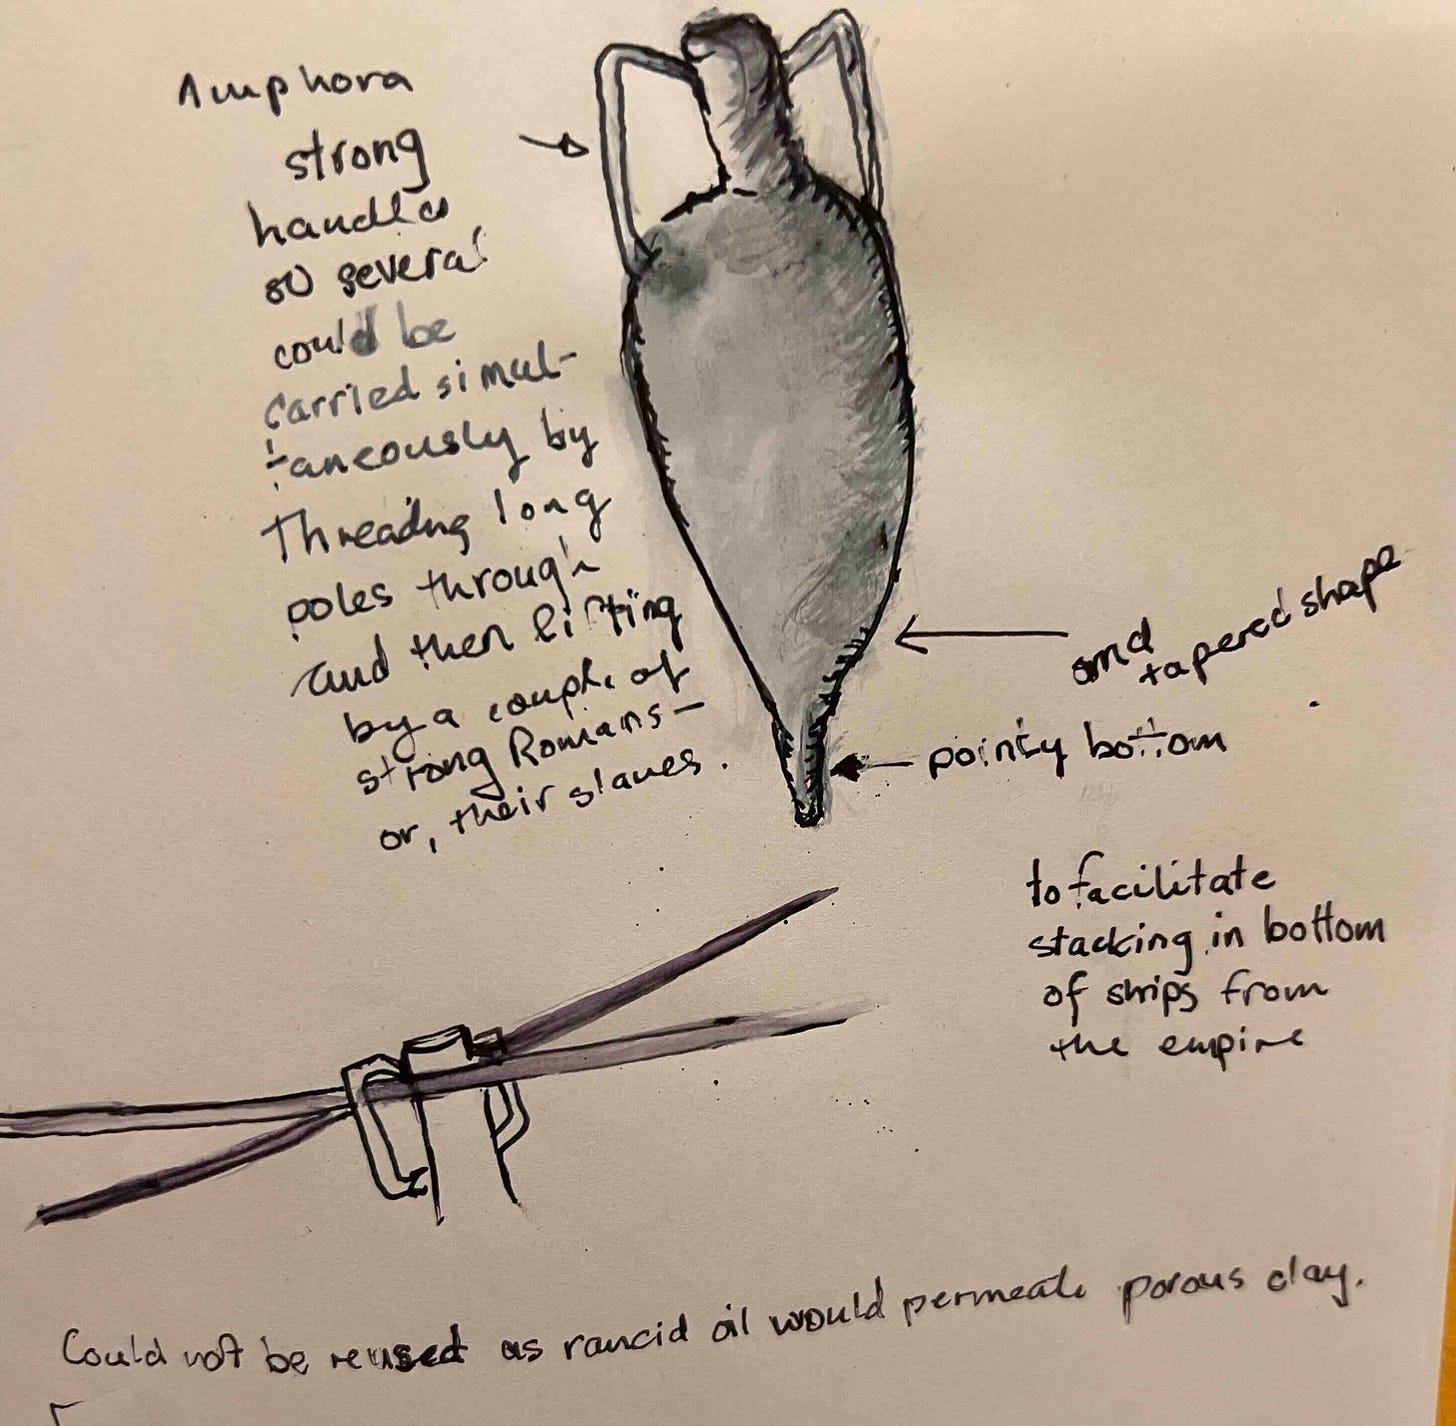 Amphora
strong
handles
so several
could be
carried simul-
taneously by
Threading long
poles through
and then lifting
by a couple of
strong Romans –
or, their slaves.
and
tapered shape
pointy bottom
to facilitate
stacking in bottom
of ships from
the empire
Could not be reused as rancid oil would permeate porous clay.